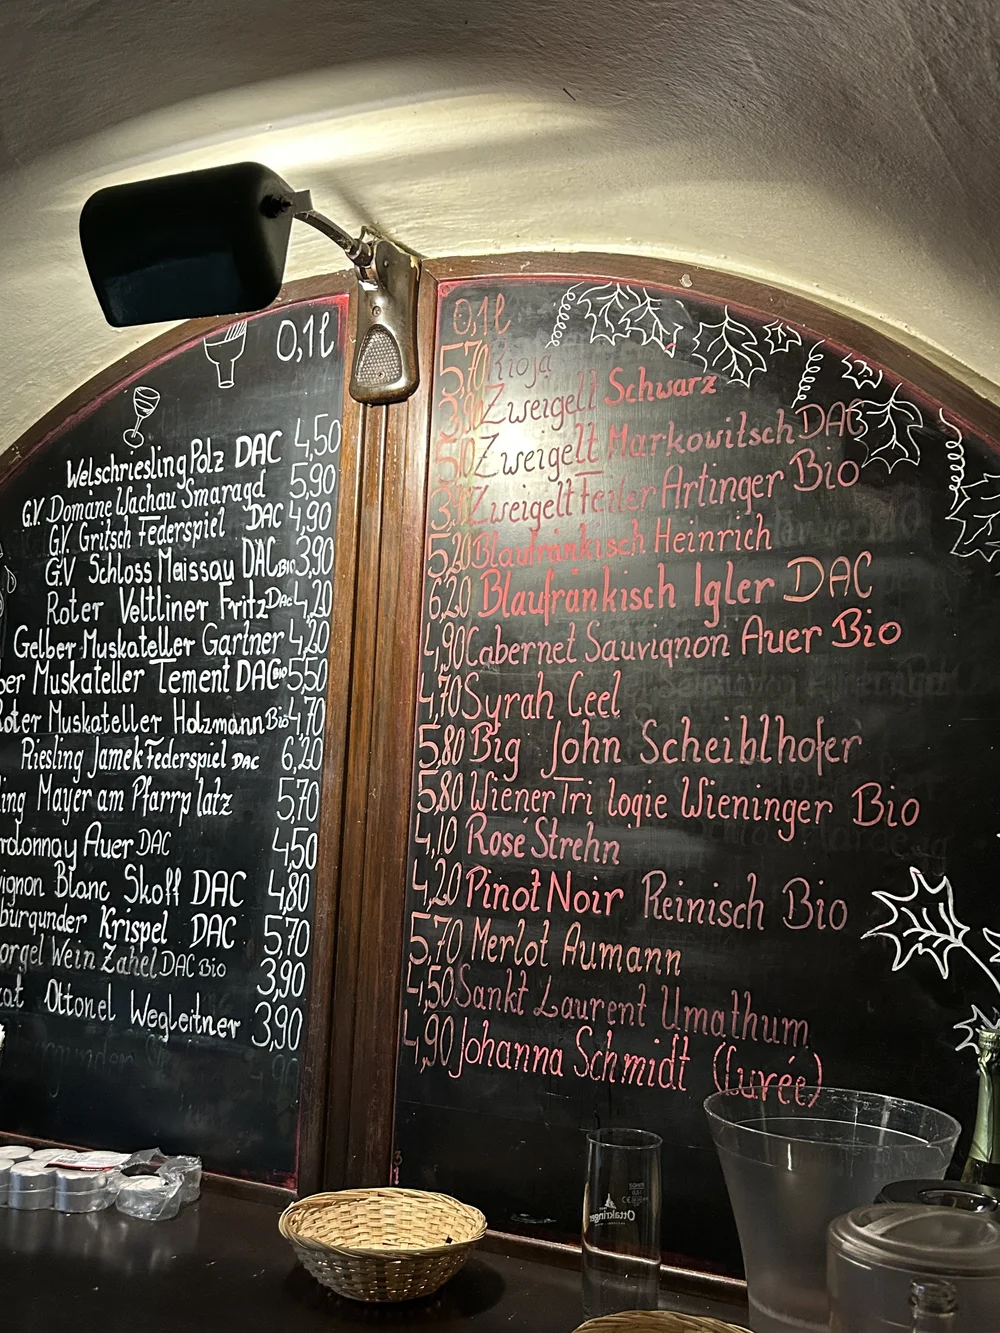 0,1l
Welschriesling Polz DAC 4,50
G.V. Domäne Wachau Smaragd 5,90
G.V. Gritsch Federspiel DAC 4,90
G.V Schloss Maissau DAC Bio 3,90
Roter Veltliner Fritz DAC 4,20
Gelber Muskateller Gartner 4,20
Muskateller Tement DAC Bio 5,50
Roter Muskateller Holzmann Bio 4,70
Riesling Jamek Federspiel DAC 6,20
Mayer am Pfarrplatz 5,70
Auer DAC 4,50
Blanc Skoff DAC 4,80
burgunder Krispel DAC 5,70
Wein Zahel DAC Bio 3,90
Ottonel Wegleitner 3,90
0,1l
5,70 Rioja
Zweigelt Schwarz
Zweigelt Markowitsch DAC
Zweigelt Feiler Artinger Bio
5,20 Blaufränkisch Heinrich
6,20 Blaufränkisch Igler DAC
4,90 Cabernet Sauvignon Auer Bio
4,70 Syrah Ceel
5,80 Big John Scheiblhofer
5,80 Wiener Trilogie Wieninger Bio
4,10 Rosé Strehn
4,20 Pinot Noir Reinisch Bio
5,70 Merlot Aumann
4,50 Sankt Laurent Umathum
4,90 Johanna Schmidt (Cuvée)
Ottakringer